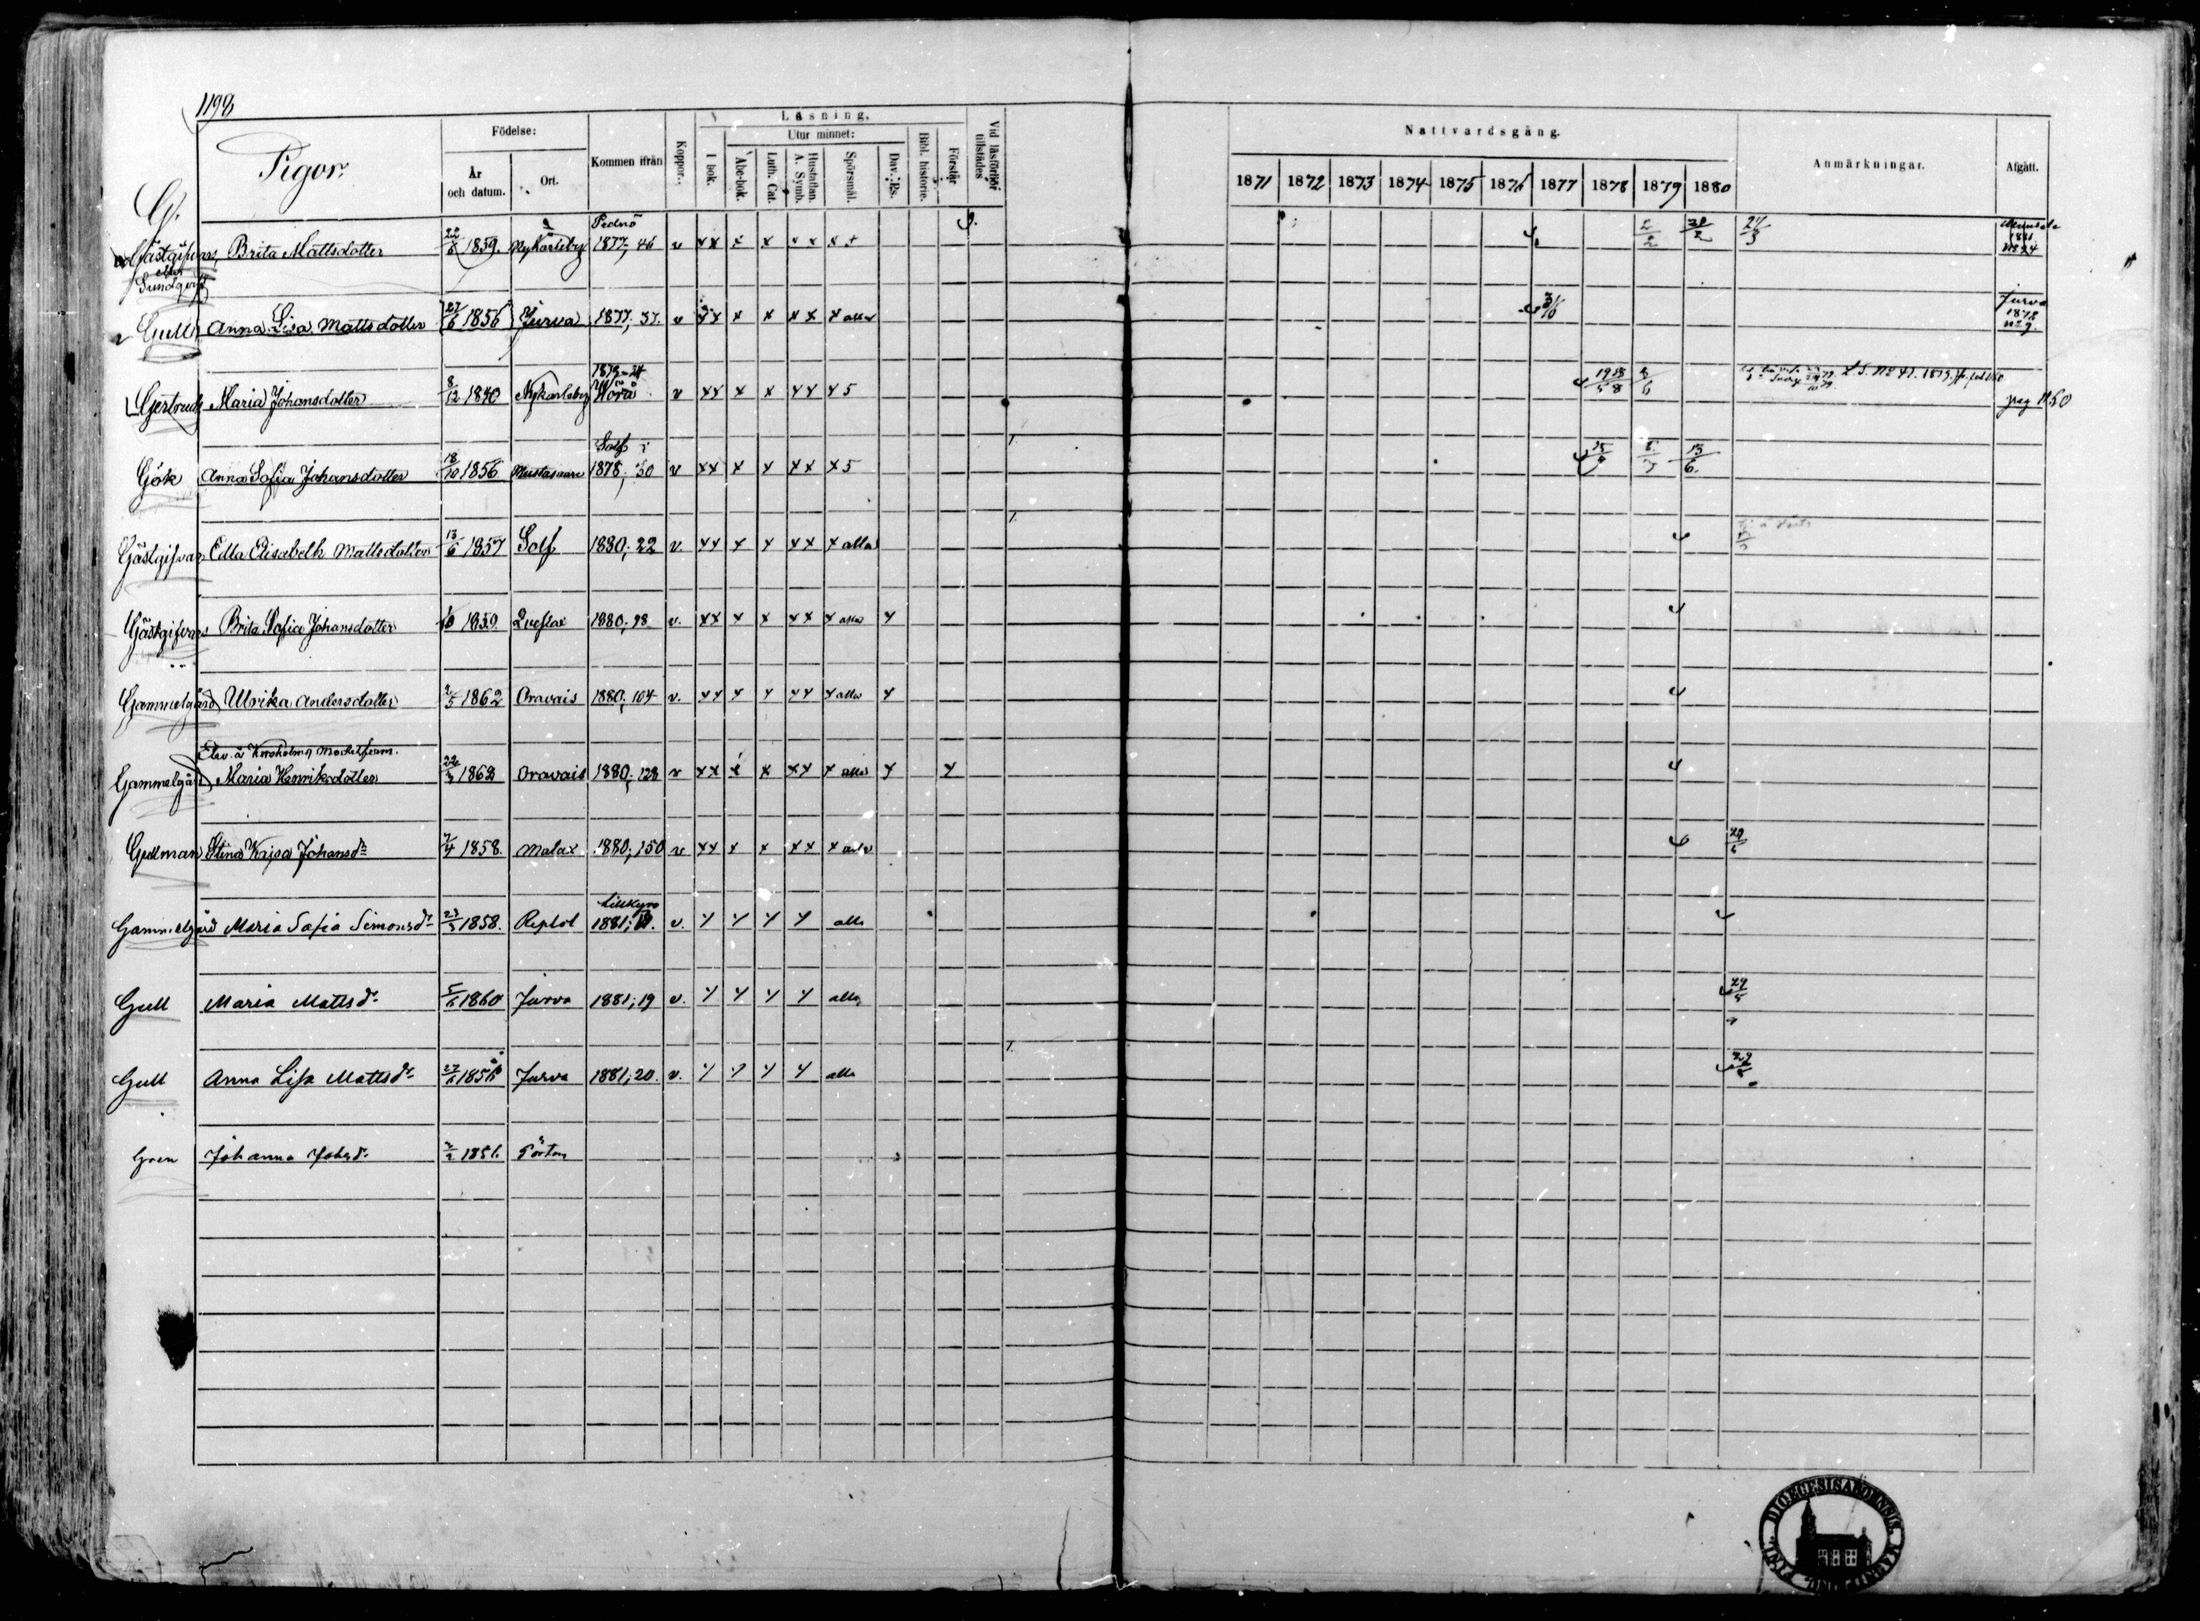 1198
Pigor.
G.
Födelse:
År och datum.
Ort.
Kommen ifrån
Koppor.
Läsning.
I bok.
Utur minnet:
Abc-bok.
Luth. Cat.
Hustaflan. A. Symb.
Spörsmål.
Dav. Ps.
Bibl. historie.
Förstår
Vid läsförhör tillstädes
Nattvardsgång.
1871 1872 1873 1874 1875 1876 1877 1878 1879 1880
Anmärkningar.
Afgått.
Gästgifvars Brita Mattsdotter 22/5 1859. Nykarleby Pedersö 1877, 46 v xx x x x x x + 2/2 24/3 1881 No 24
eller Sundqvist
Gull Anna Lisa Mattsdotter 27/6 1856 Jurva 1877, 37. v xx x x x x x alla 3/10 Jurva 1878 No 9.
Gertruds Maria Johansdotter 8/12 1840 Nykarleby 1879 Vörå v xx x x x x x 5 pag 1160
Gök Anna Sofia Johansdotter 18/10 1856 Mustasaari Solf 1878, 30 v xx x x x x x 5 13/6.
Gästgifvars Edla Elisabeth Mattsdotter 13/6 1857 Solf 1880; 22 v. xx x x x x x alla
Gästgifvars Brita Sofia Johansdotter 1859 Qveflax 1880; 98 v. xx x x x x x alla x
Gammelgård Ulrika Andersdotter 2/5 1862 Oravais 1880; 104 v. xx x x x x x alla x
Elev å Korsholms
Gammelgård Maria Henriksdotter 22/3 1862 Oravais 1880; 128 v xx x x x x x alla x x
Gullman Stina Kajsa Johansdr 7/4 1858. Malax 1880; 150 v xx x x x x x alla 29/6
Gammelgård Maria Sofia Simonsdr 23/3 1858. Replot Lillkyro 1881; v. x x x x alla
Gull Maria Mattsdr 5/6 1860 Jurva 1881; 19 v. x x x x alla 29/5
Gull Anna Lisa Mattsdr 27/6 1856 Jurva 1881; 20. v. x x x x alla 29/5
Gren Johanna 2/2 1851. Pörtom
DIOECESIS ABOENSIS